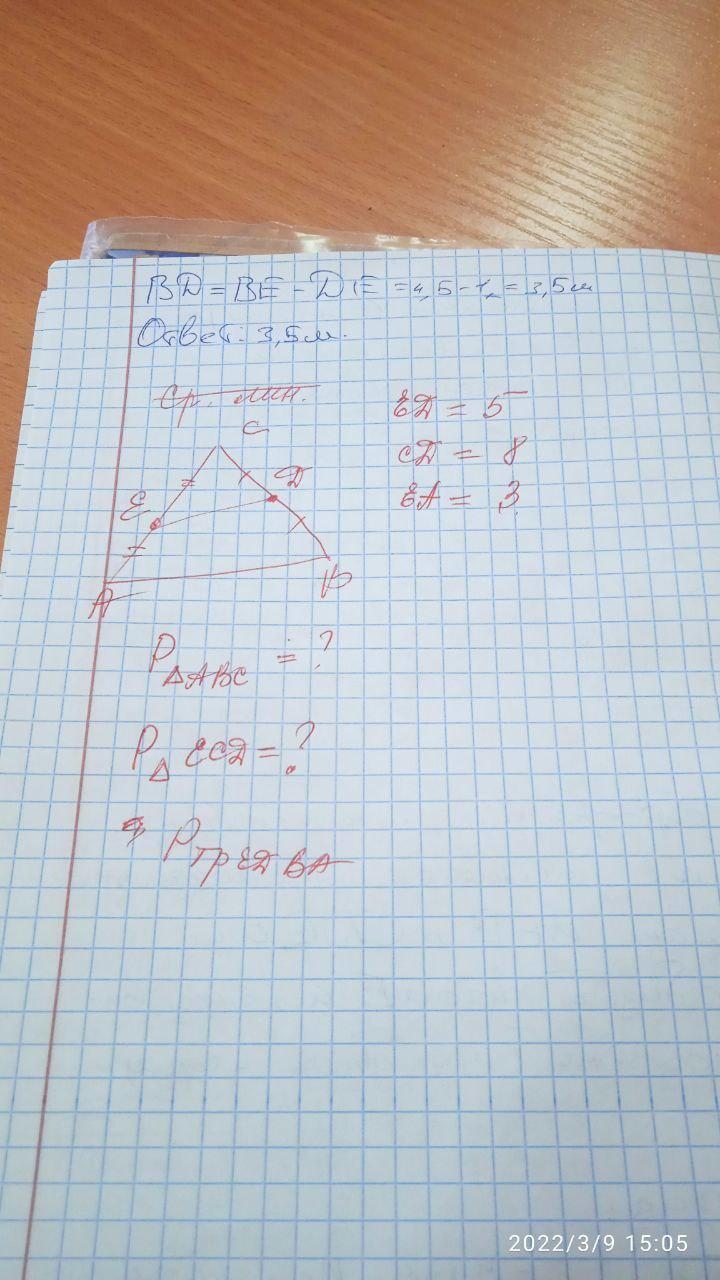 BD = BE - DE = 4,5 - 1 = 3,5 м
Ответ: 3,5 м.
Ср. лин.
C
ED = 5
CD = 8
EA = 3
D
E
A
B
P△ABC = ?
P△ECD = ?
P тр EDBA
2022/3/9 15:05